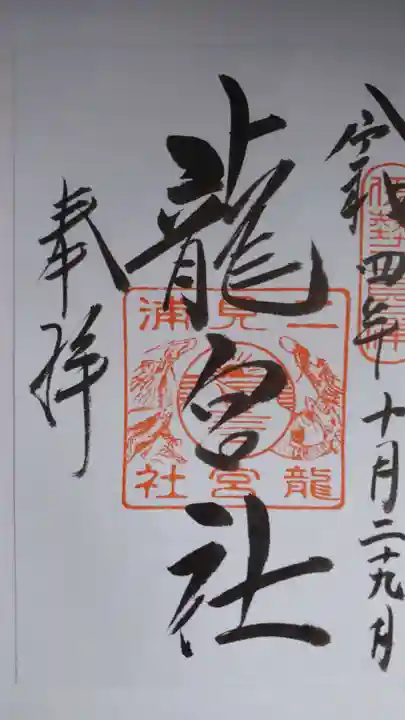 令和四年十月二十九日
龍宮社
奉拝
二見浦
龍宮社